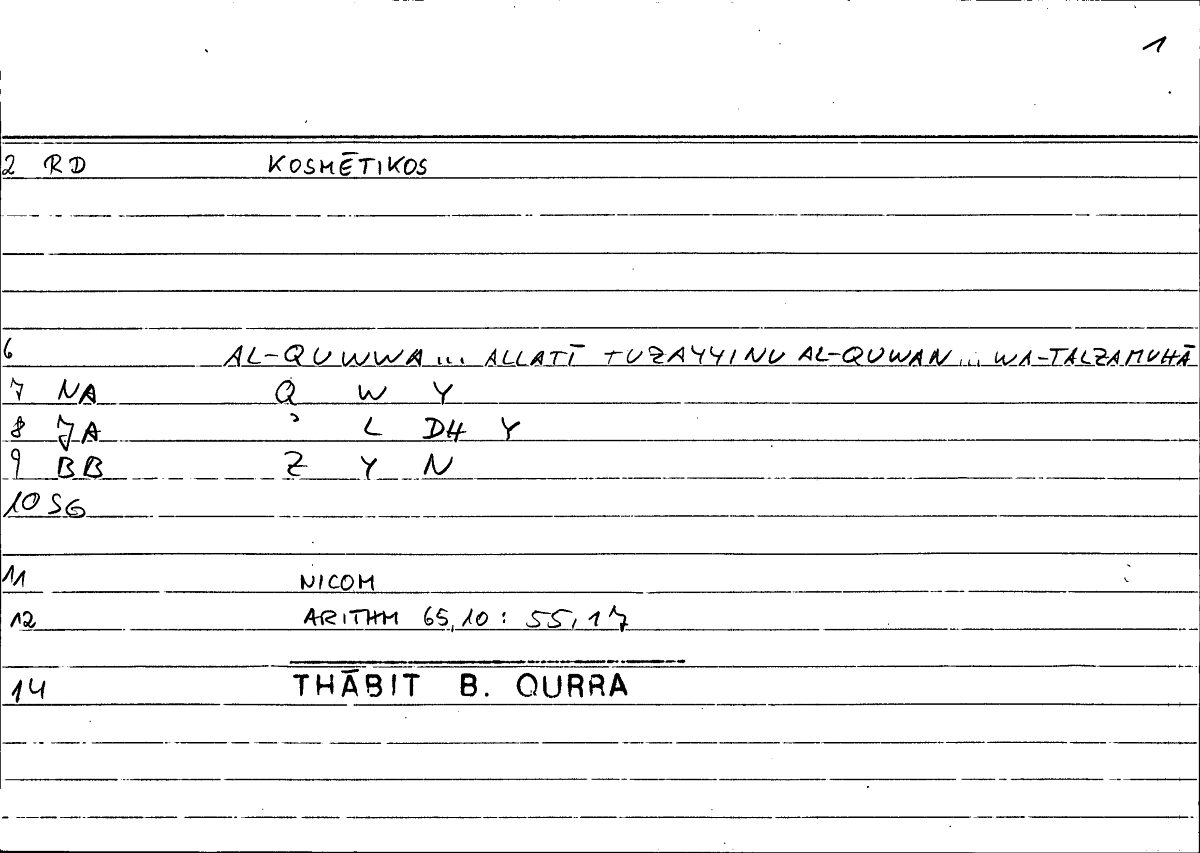 1
2 RD KOSMĒTIKOS
6 AL-QUWWA ... ALLATĪ TUZAYYINU AL-QUWAN ... WA-TALZAMUHĀ
7 NA Q W Y
8 JA ʾ L DH Y
9 BB Z Y N
10 SG
11 NICOM
12 ARITHM 65,10 : 55,17
14 THĀBIT B. QURRA